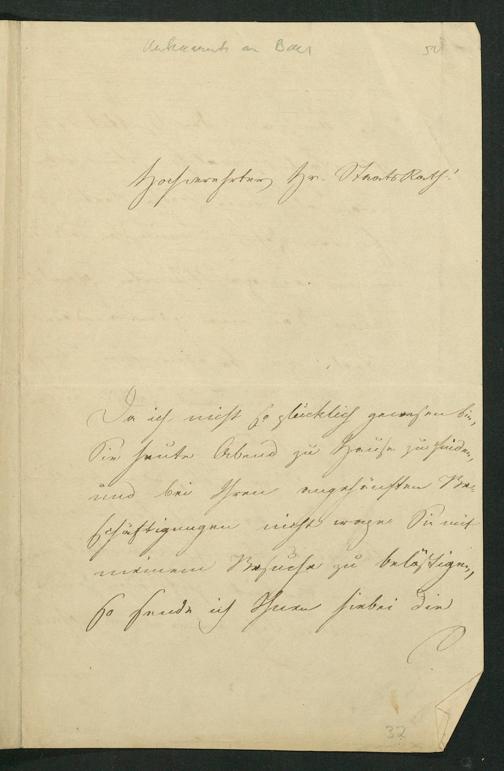 Unbekannt an Baer
50
Hochverehrter Hr. StaatsRath!
Da ich nicht so glücklich gewesen bin,
Sie heute Abend zu Hause zu finden,
und bei Ihren angehäuften Be-
schäftigungen nicht wage Sie mit
meinem Besuche zu belästigen,
so sende ich Ihnen hiebei die
32